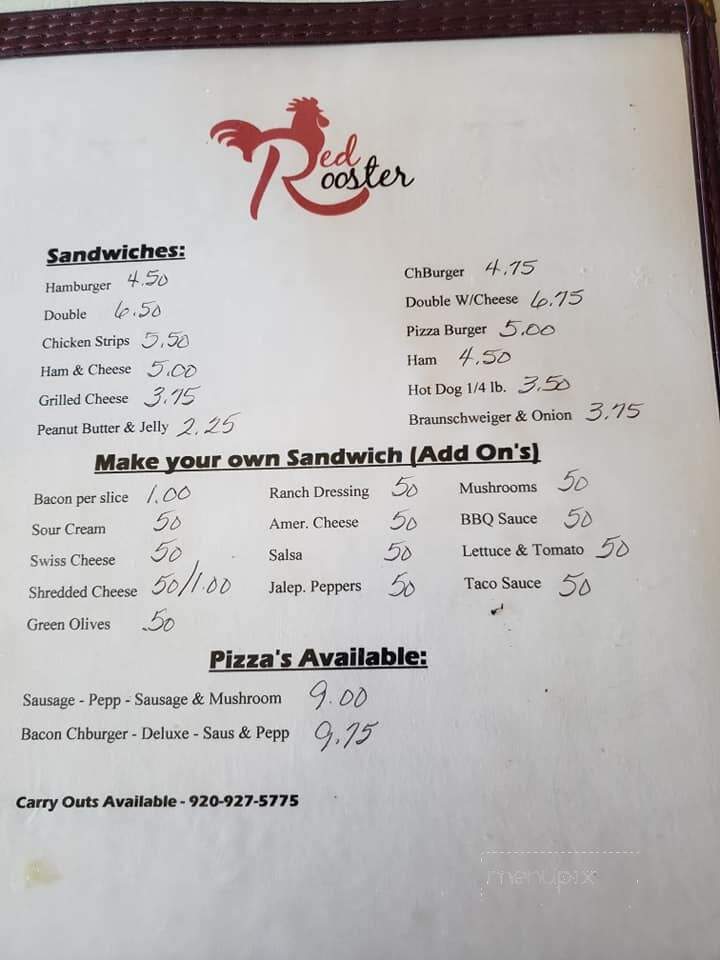 Red
Rooster
Sandwiches:
Hamburger 4.50
Double 6.50
Chicken Strips 5.50
Ham & Cheese 5.00
Grilled Cheese 3.75
Peanut Butter & Jelly 2.25
ChBurger 4.75
Double W/Cheese 6.75
Pizza Burger 5.00
Ham 4.50
Hot Dog 1/4 lb. 3.50
Braunschweiger & Onion 3.75
Make your own Sandwich (Add On's)
Bacon per slice 1.00
Sour Cream 50
Swiss Cheese 50
Shredded Cheese 50/1.00
Green Olives .50
Ranch Dressing 50
Amer. Cheese 50
Salsa 50
Jalep. Peppers 50
Mushrooms 50
BBQ Sauce 50
Lettuce & Tomato 50
Taco Sauce 50
Pizza's Available:
Sausage - Pepp - Sausage & Mushroom 9.00
Bacon Chburger - Deluxe - Saus & Pepp 9.75
Carry Outs Available - 920-927-5775
menupix